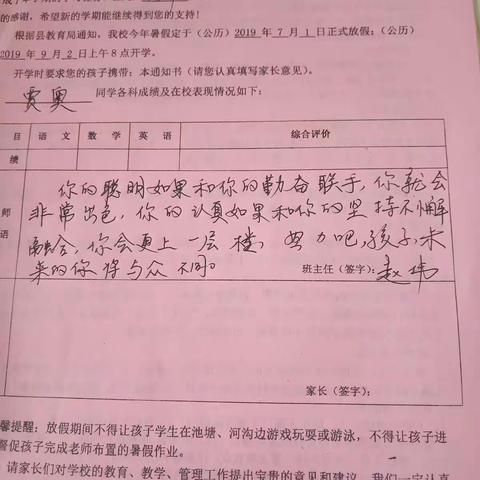 的感谢，希望新的学期能继续得到您的支持！
根据县教育局通知，我校今年暑假定于（公历）2019 年 7 月 1 日正式放假；（公历）
2019 年 9 月 2 日上午 8 点开学。
开学时要求您的孩子携带：本通知书（请您认真填写家长意见）。
贾奥 同学各科成绩及在校表现情况如下：
目 语 文 数 学 英 语 综合评价
绩
你的聪明如果和你的勤奋联手，你就会
师 非常出色，你的认真如果和你的坚持不懈
语 融合，你会更上一层楼，努力吧，孩子，未
来的你将与众不同。 班主任（签字）：赵伟
家长（签字）：
馨提醒：放假期间不得让孩子学生在池塘、河沟边游戏玩耍或游泳，不得让孩子进
督促孩子完成老师布置的暑假作业。
请家长们对学校的教育、教学、管理工作提出宝贵的意见和建议，我们一定认真